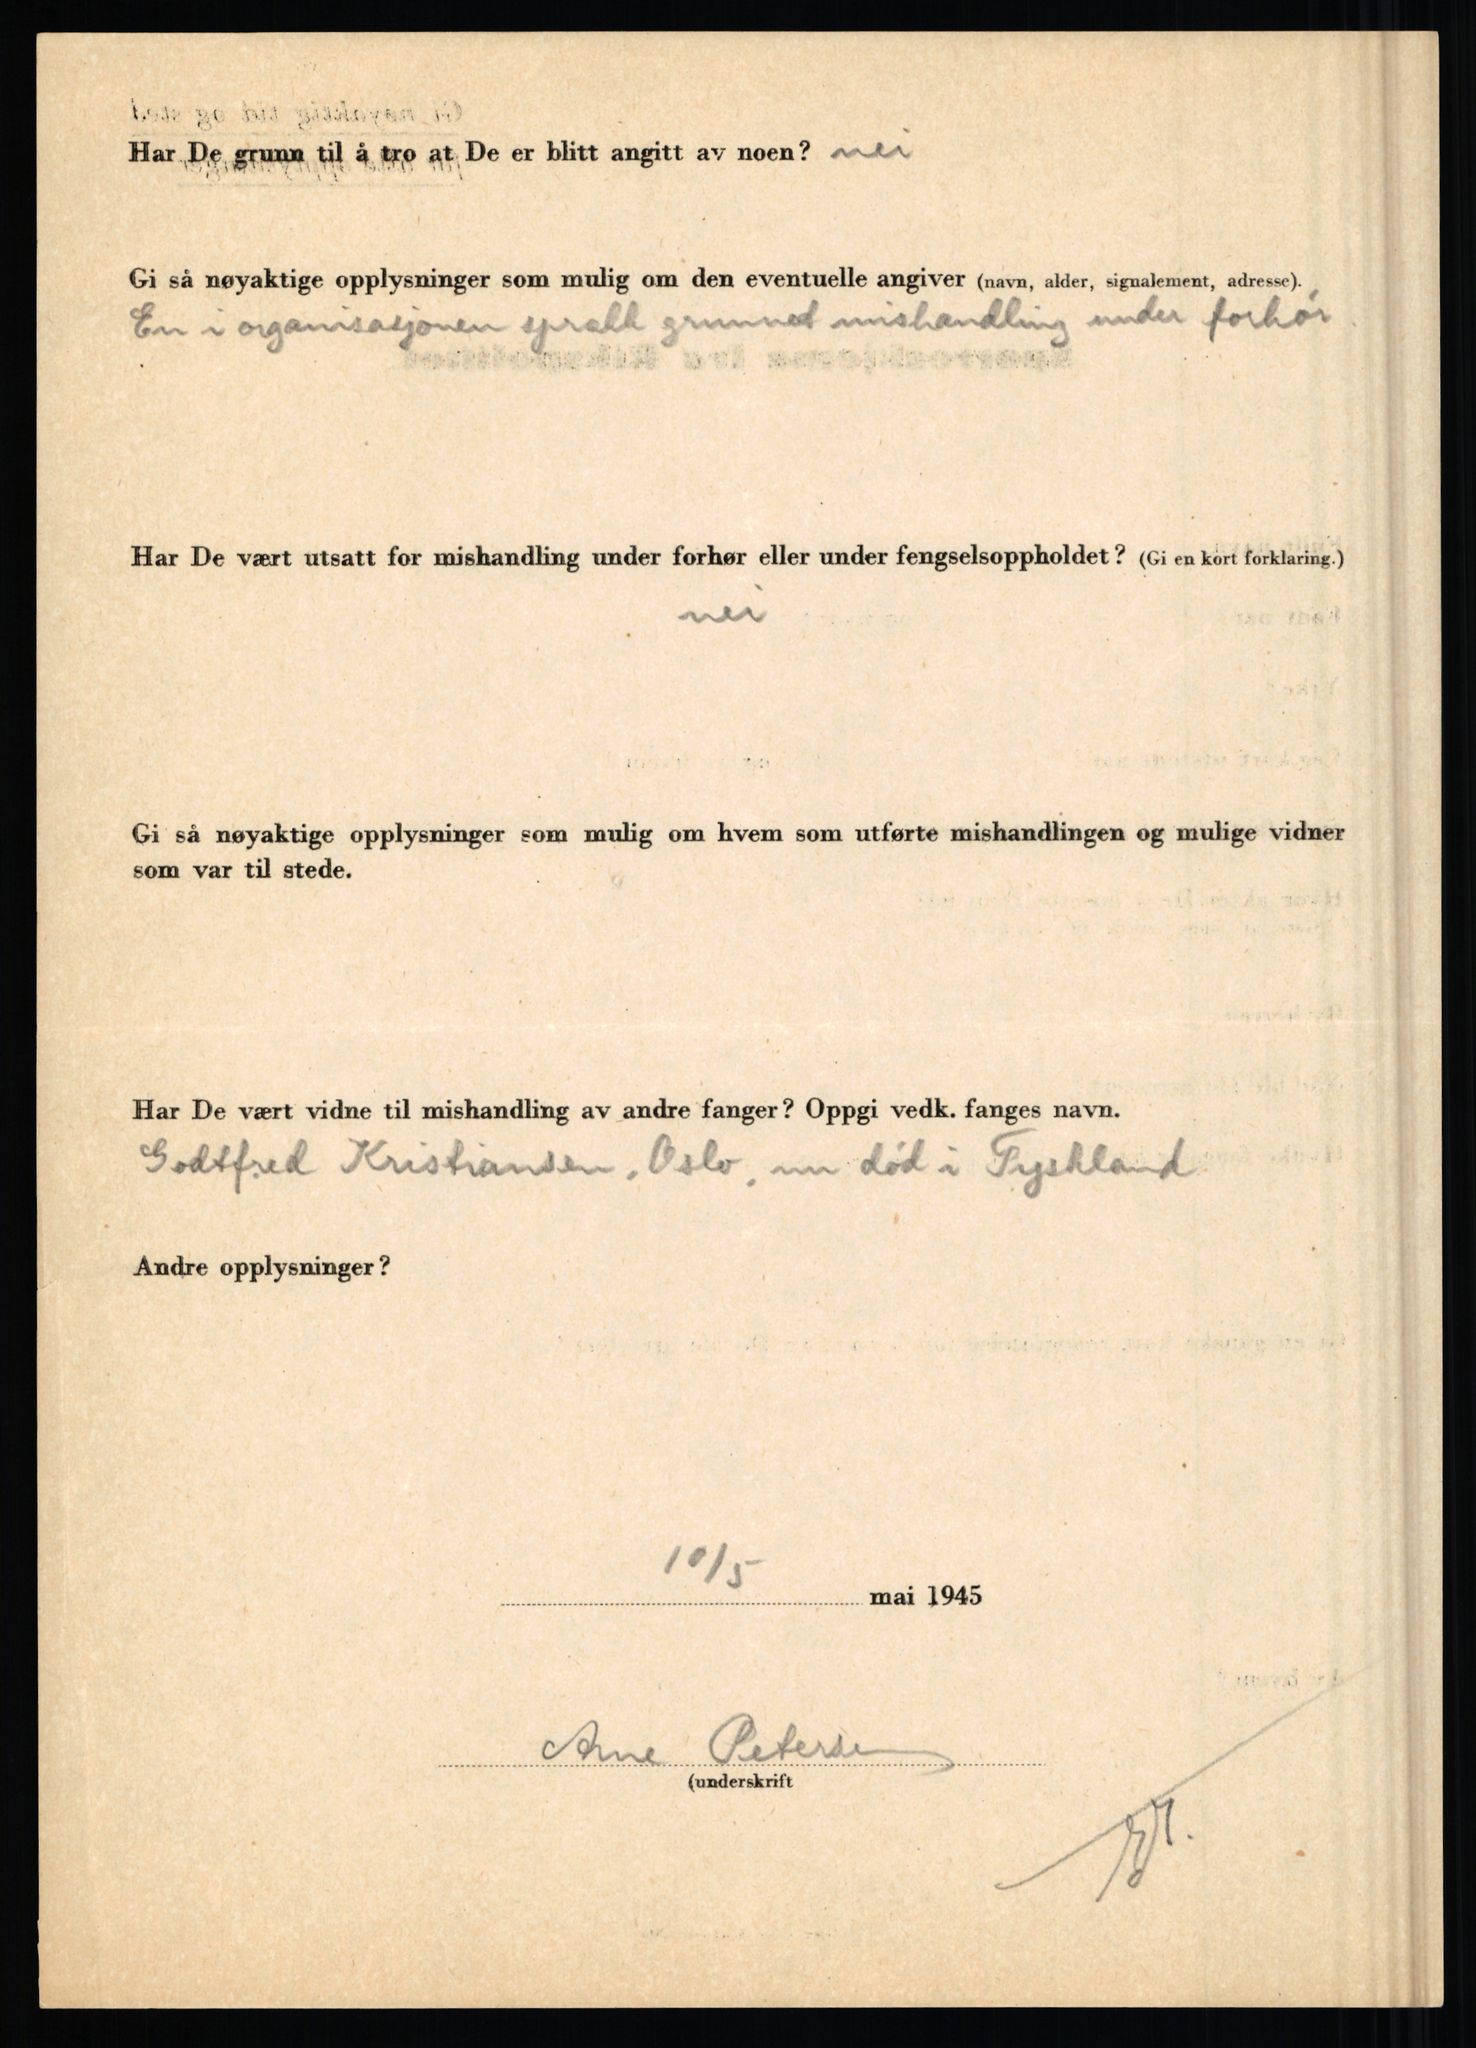 Har De grunn til å tro at De er blitt angitt av noen? nei
Gi så nøyaktige opplysninger som mulig om den eventuelle angiver (navn, alder, signalement, adresse).
En i organisasjonen sprakk grunnet mishandling under forhør
Har De vært utsatt for mishandling under forhør eller under fengselsoppholdet? (Gi en kort forklaring.)
nei
Gi så nøyaktige opplysninger som mulig om hvem som utførte mishandlingen og mulige vidner
som var til stede.
Har De vært vidne til mishandling av andre fanger? Oppgi vedk. fanges navn.
Godtfred Kristiansen, Oslo, nu død i Tyskland
Andre opplysninger?
10/5 mai 1945
Arne Petersen
(underskrift